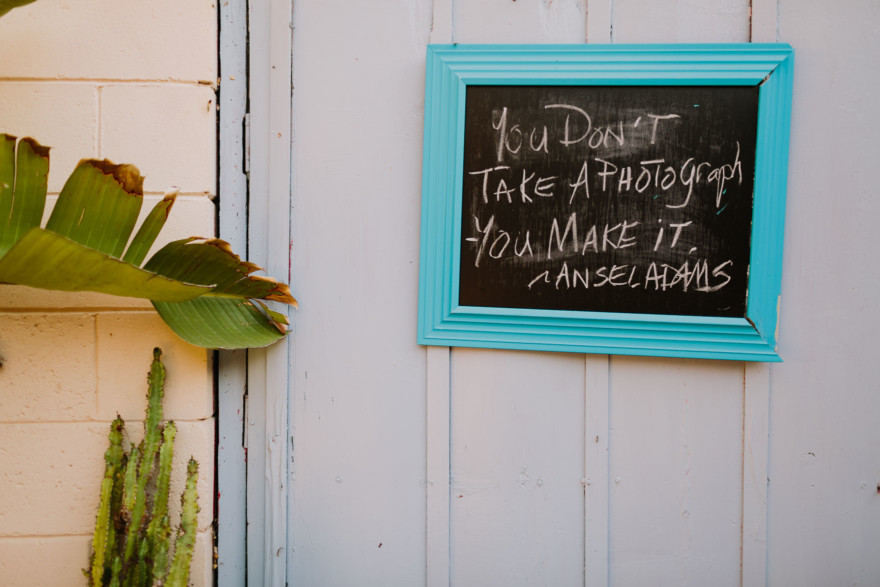 You Don't
Take A Photograph
-You Make it.
~Ansel Adams